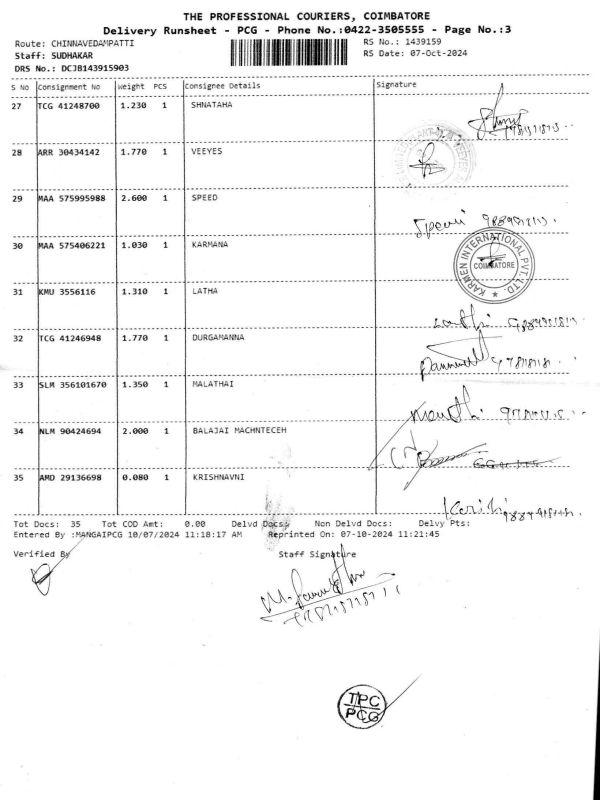 THE PROFESSIONAL COURIERS, COIMBATORE
Delivery Runsheet - PCG - Phone No.:0422-3505555 - Page No.:3
Route: CHINNAVEDAMPATTI RS No.: 1439159
Staff: SUDHAKAR RS Date: 07-Oct-2024
DRS No.: DCJB143915903
S No Consignment No Weight PCS Consignee Details Signature
27 TCG 41248700 1.230 1 SHNATAHA
28 ARR 30434142 1.770 1 VEEYES
29 MAA 575995988 2.600 1 SPEED
30 MAA 575406221 1.030 1 KARMANA
KARMEN INTERNATIONAL PVT. LTD.
COIMBATORE
31 KMU 3556116 1.310 1 LATHA
32 TCG 41246948 1.770 1 DURGAMANNA
33 SLM 356101670 1.350 1 MALATHAI
34 NLM 90424694 2.000 1 BALAJAI MACHNTECEH
35 AMD 29136698 0.080 1 KRISHNAVNI
Tot Docs: 35 Tot COD Amt: 0.00 Delvd Docs: Non Delvd Docs: Delvy Pts:
Entered By :MANGAIPCG 10/07/2024 11:18:17 AM Reprinted On: 07-10-2024 11:21:45
Verified By Staff Signature
TPC
PCG